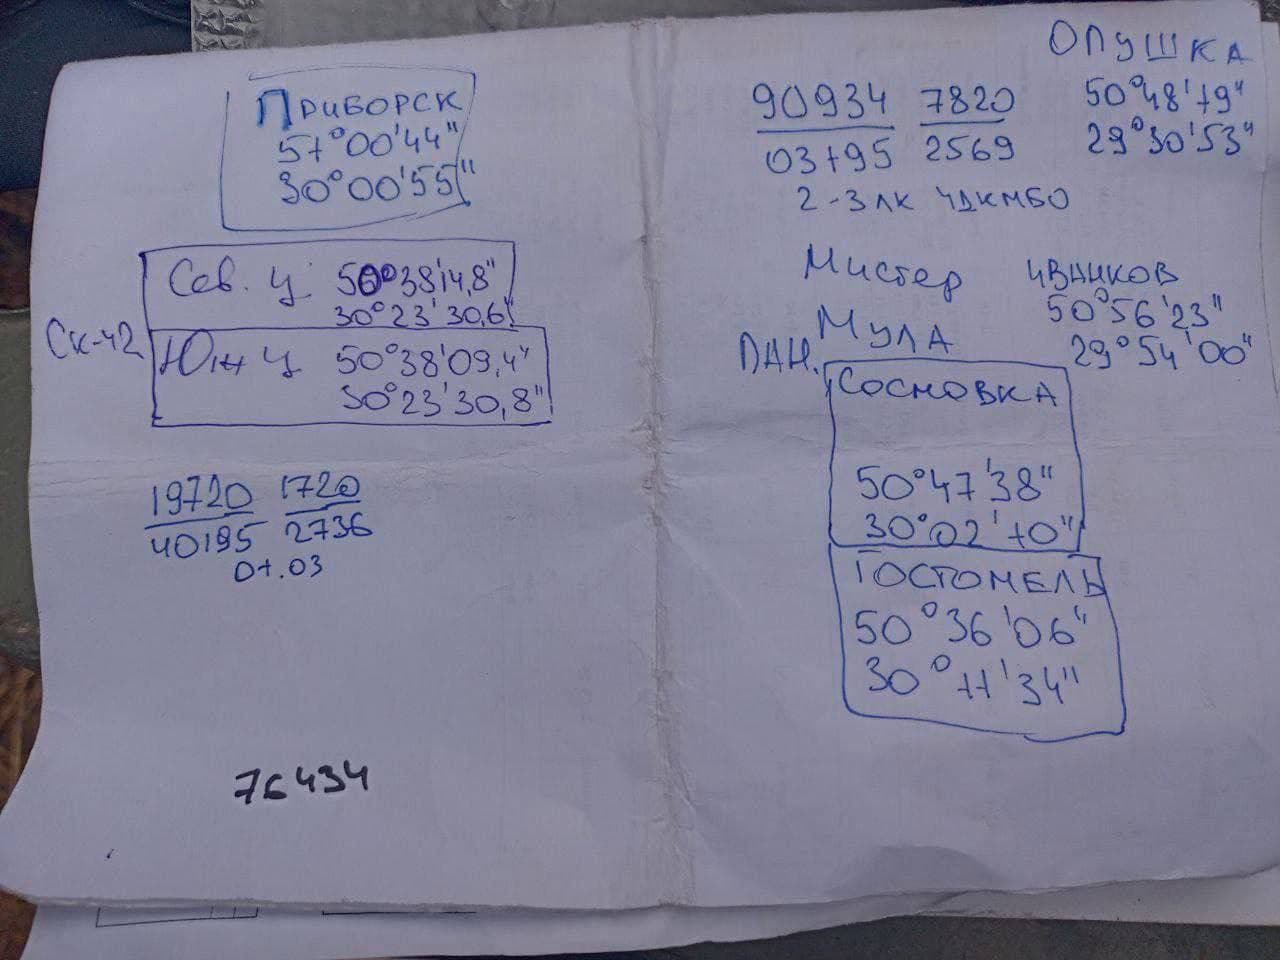 ПРИБОРСК
51°00'44"
30°00'55"
Сев. Ц 50°38'14,8"
30°23'30,6"
Ск-42
Южн Ц 50°38'09,4"
30°23'30,8"
19720 1720
40195 2736
01.03
76434
ОПУШКА
50°48'19"
29°30'53"
90934 7820
03195 2569
2-3 ЛК ЧДКМБО
Мистер
Мула
ИВАНКОВ
50°56'23"
29°54'00"
ДАН.
СОСНОВКА
50°47'38"
30°02'10"
ГОСТОМЕЛЬ
50°36'06"
30°11'34"